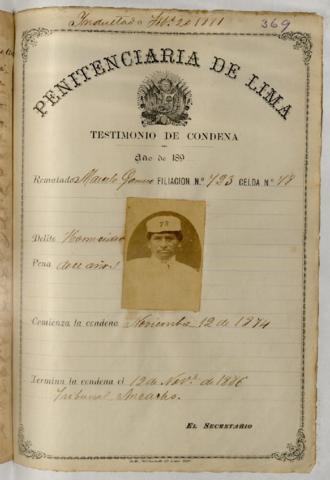 Indultado Feb. 20 1881
369
PENITENCIARIA DE LIMA
TESTIMONIO DE CONDENA
Año de 189
Rematado Marcelo FILIACION N.º 123 CELDA N.º 78
78
Delito Homicidio
Pena doce años
Comienza la condena Noviembre 12 de 1874
Termina la condena el 12 de Nov.e de 1886
Tribunal Ancachs.
EL SECRETARIO